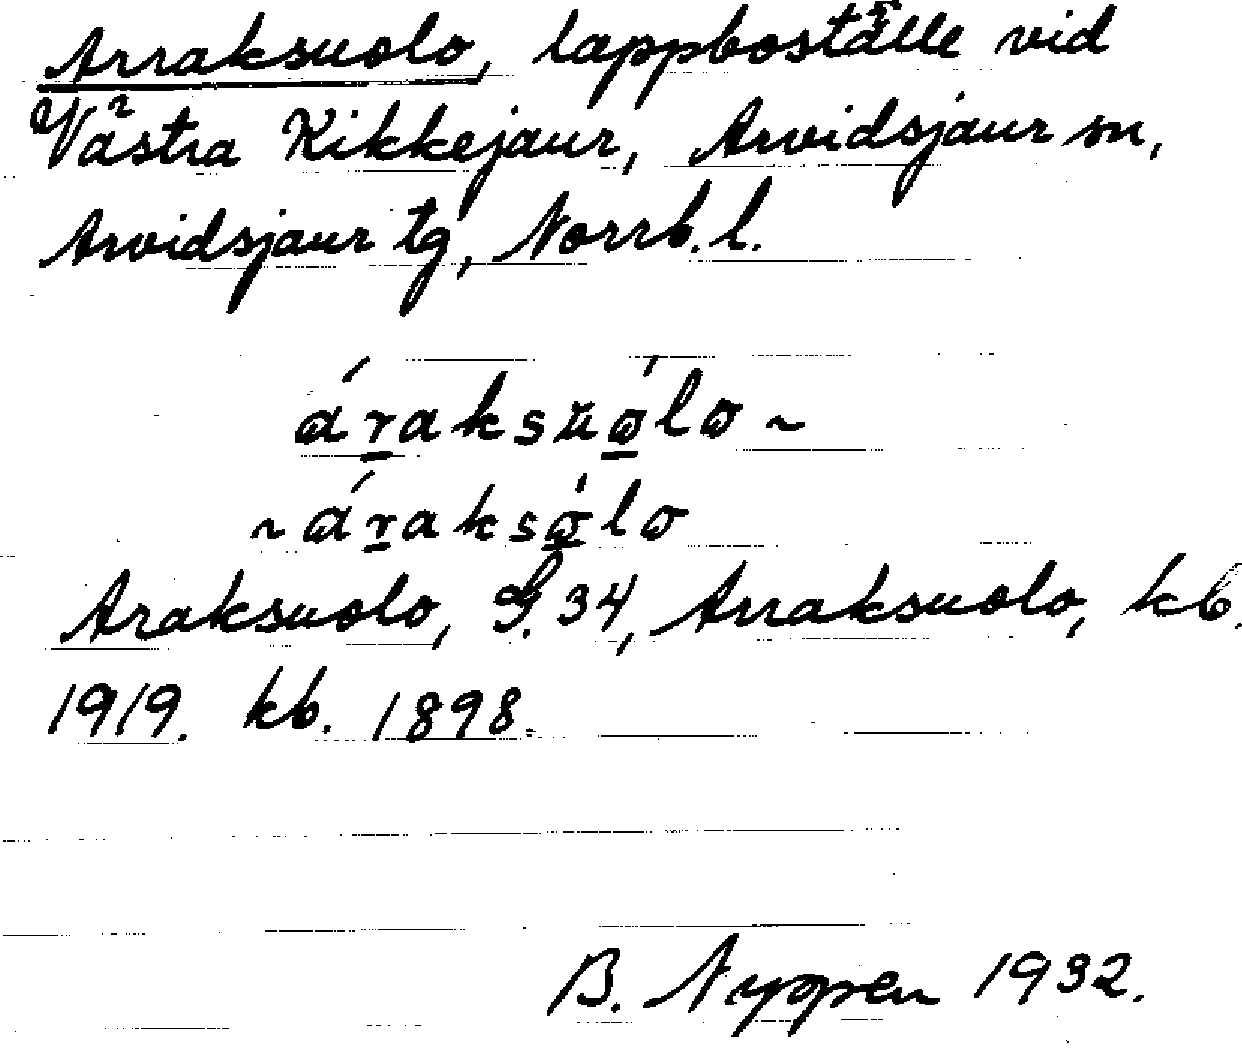 Arraksuolo, lappboställe vid
Västra Kikkejaur, Arvidsjaur sn,
Arvidsjaur tg, Norrb. l.
áṟaksŭo̱̍lo ~
~ áṟakso̱̍lo
Araksuolo, G. 34, Arraksuolo, kb.
1919. kb. 1898.
B. Nyppen 1932.